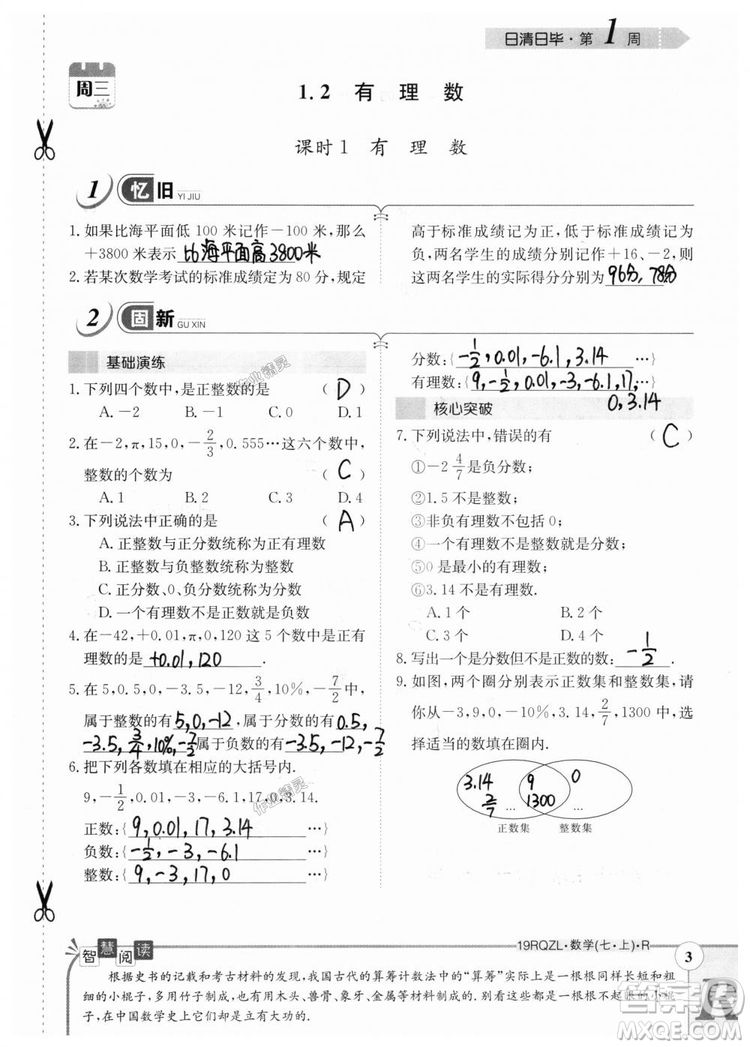 日清日毕·第1周
周三
1.2 有理数
课时1 有理数
1 忆旧 YI JIU
1. 如果比海平面低 100 米记作-100 米,那么
+3800 米表示 比海平面高3800米
2. 若某次数学考试的标准成绩定为 80 分,规定
高于标准成绩记为正,低于标准成绩记为
负,两名学生的成绩分别记作+16、-2,则
这两名学生的实际得分分别为 96分,78分
2 固新 GU XIN
基础演练
1. 下列四个数中,是正整数的是 ( D )
A. -2 B. -1 C. 0 D. 1
2. 在-2,π,15,0,-2/3,0.555…这六个数中,
整数的个数为 ( C )
A. 1 B. 2 C. 3 D. 4
3. 下列说法中正确的是 ( A )
A. 正整数与正分数统称为正有理数
B. 正整数与负整数统称为整数
C. 正分数、0、负分数统称为分数
D. 一个有理数不是正数就是负数
4. 在-42,+0.01,π,0,120 这 5 个数中是正有
理数的是 +0.01,120.
5. 在 5,0.5,0,-3.5,-12,3/4,10%,-7/2中,
属于整数的有 5,0,-12,属于分数的有 0.5,
-3.5,3/4,10%,-7/2 属于负数的有 -3.5,-12,-7/2
6. 把下列各数填在相应的大括号内.
9,-1/2,0.01,-3,-6.1,17,0,3.14.
正数:{ 9,0.01,17,3.14 …}
负数:{ -1/2,-3,-6.1 …}
整数:{ 9,-3,17,0 …}
分数:{ -1/2,0.01,-6.1,3.14 …}
有理数:{ 9,-1/2,0.01,-3,-6.1,17, …}
0,3.14
核心突破
7. 下列说法中,错误的有 ( C )
①-2 4/7是负分数;
②1.5 不是整数;
③非负有理数不包括 0;
④一个有理数不是整数就是分数;
⑤0 是最小的有理数;
⑥3.14 不是有理数.
A. 1 个 B. 2 个
C. 3 个 D. 4 个
8. 写出一个是分数但不是正数的数: -1/2.
9. 如图,两个圈分别表示正数集和整数集,请
你从-3,9,0,-10%,3.14,2/7,1300 中,
选择适当的数填在圈内.
3.14 9 0
2/7 … 1300 …
正数集 整数集
19RQZL·数学(七·上)·R
3
智慧阅读
根据史书的记载和考古材料的发现,我国古代的算筹计数法中的“算筹”实际上是一根根同样长短和粗
细的小棍子,多用竹子制成,也有用木头、兽骨、象牙、金属等材料制成的.别看这些都是一根根不起眼的小棍
子,在中国数学史上它们却是立有大功的.
作业精灵
作业精灵
答案圈
MXQE.COM